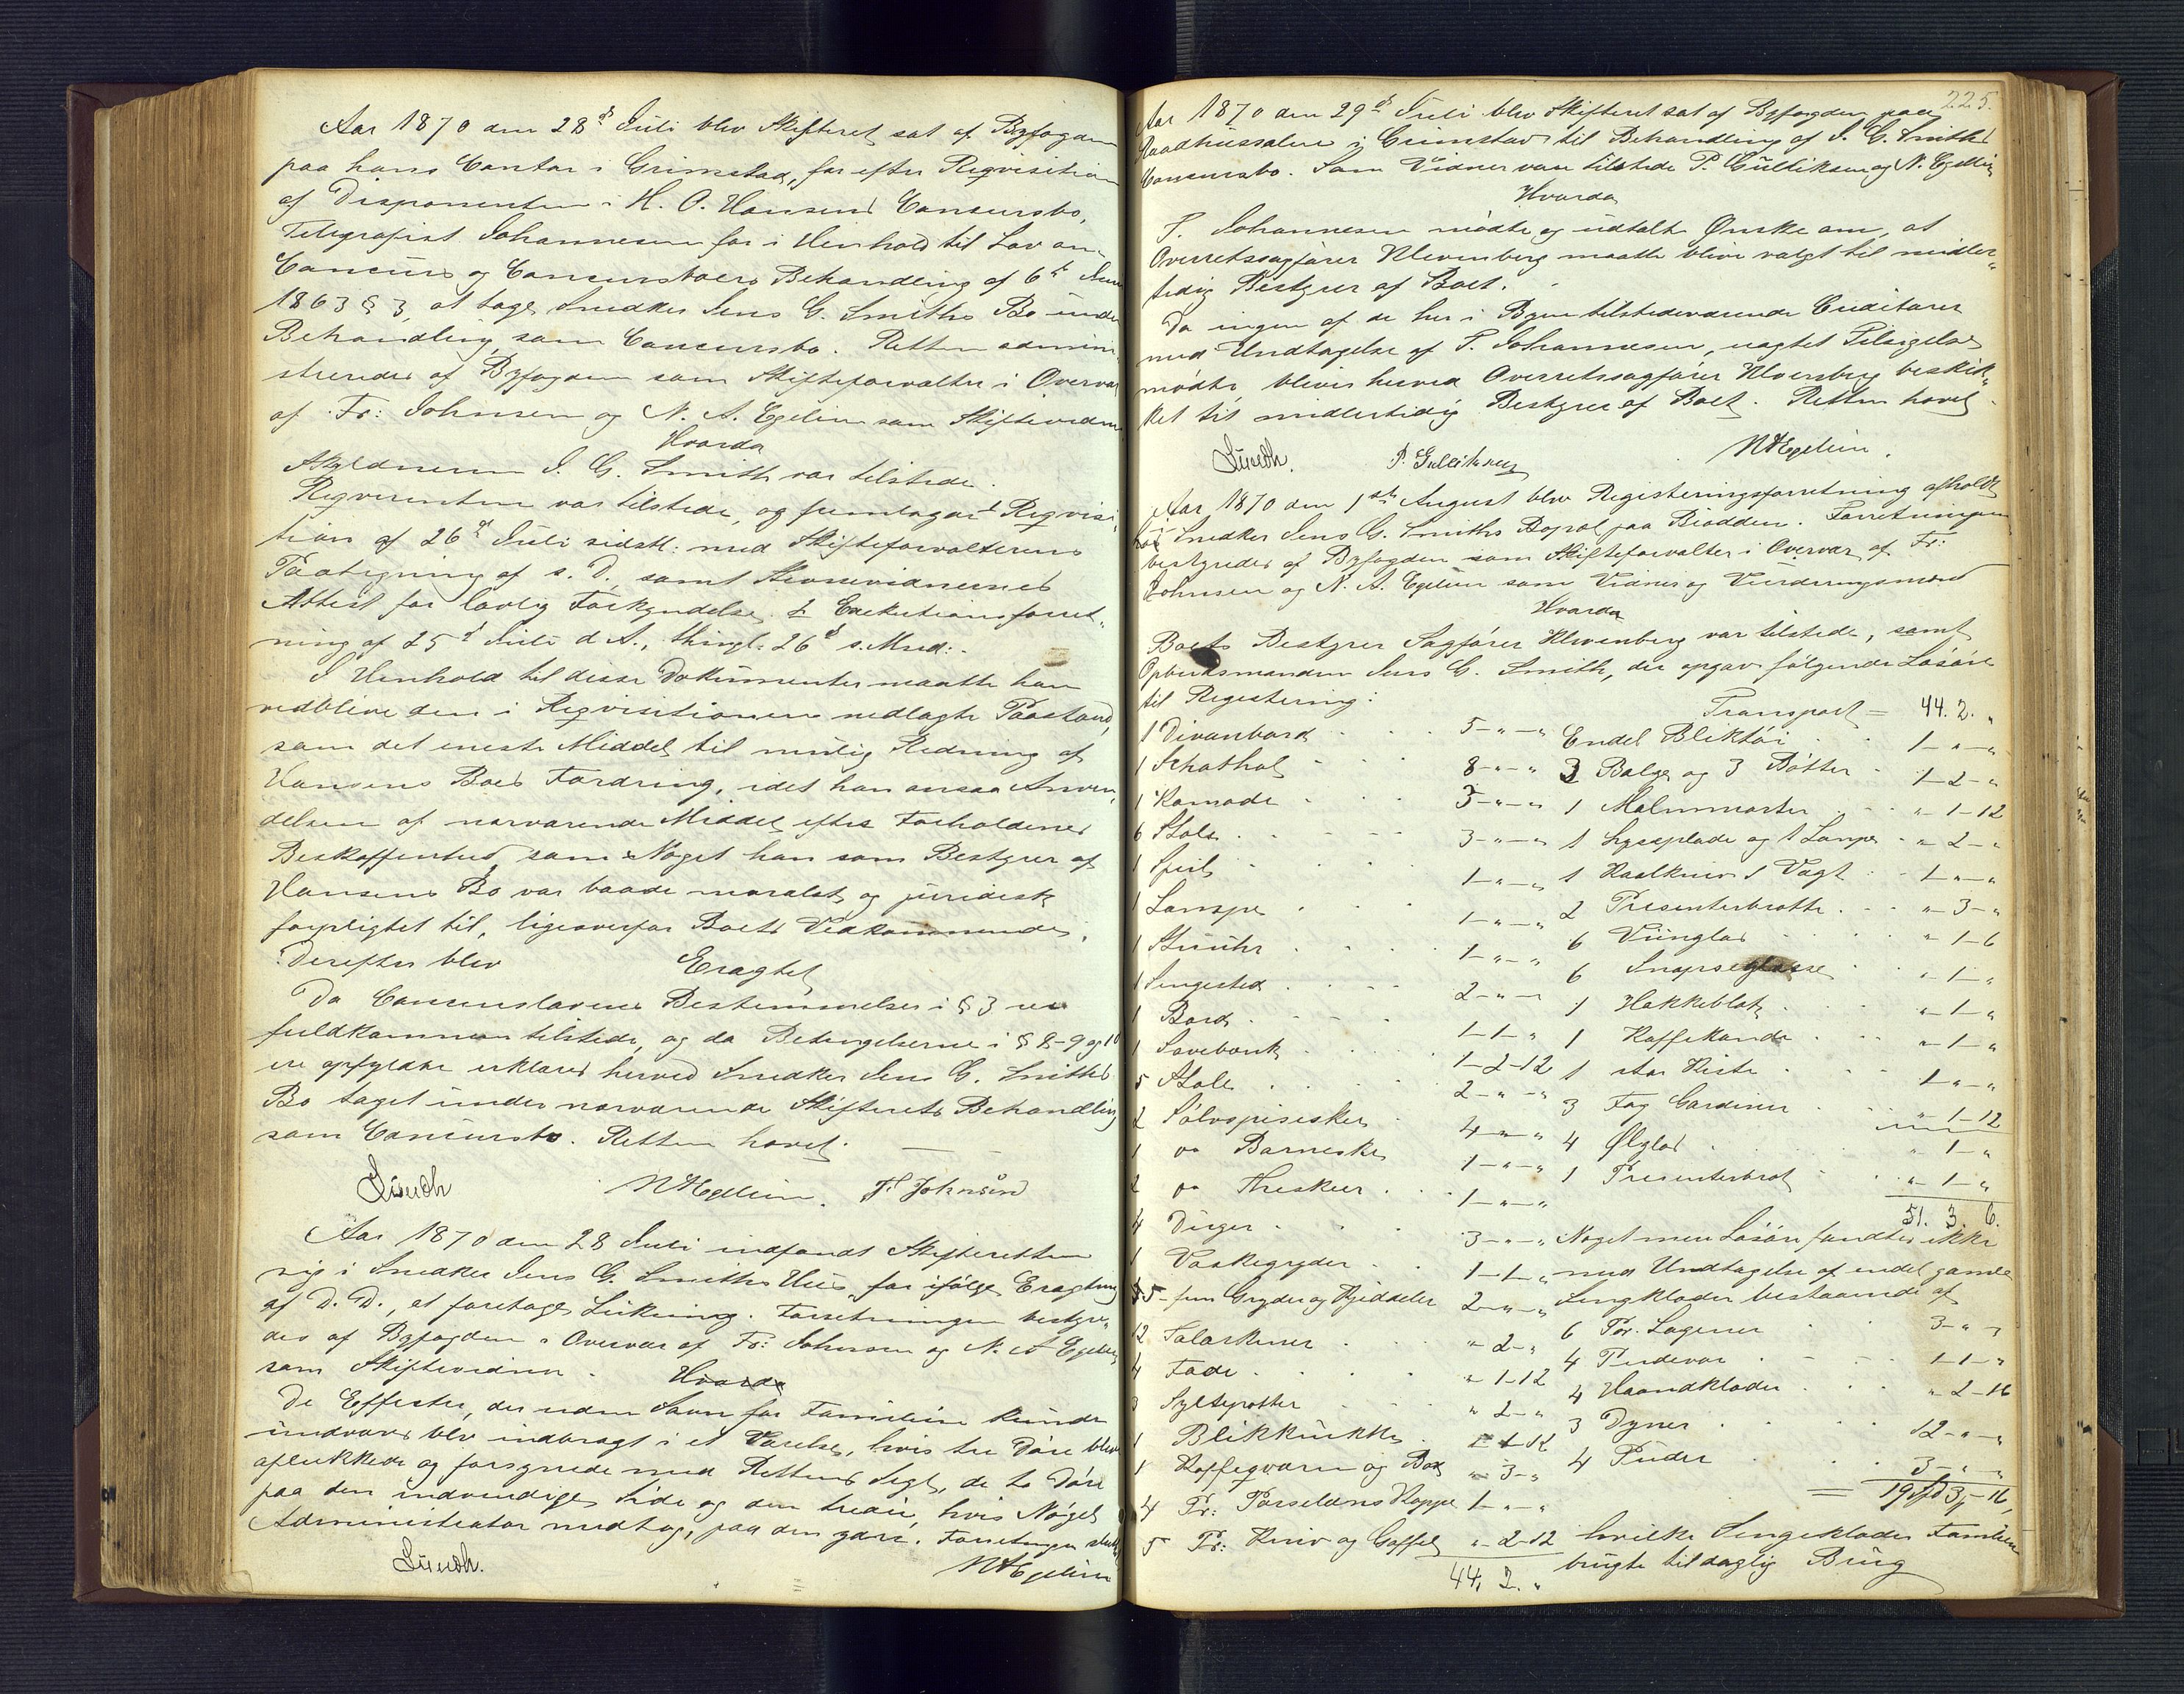 Aar 1870 den 28de Juli blev Skifteret sat af Byfogden
paa hans Contor i Grimstad, for efter Reqvisition
af Disponenten i H. O. Hansens Concursbo,
Telegrafist Johannesen for i Henhold til Lov om
Concurs og Concursboers Behandling af 6te Juni
1863 § 3, at tage Snedker Jens G. Smiths Bo under
Behandling som Concursbo. Retten admini-
streredes af Byfogden som Skifteforvalter i Overvær
af Fr: Johnsen og N. A. Egelien som Skiftevidner
Hvorda
Skyldneren J. G. Smith var tilstede.
Reqvirenten var tilstede, og fremlagde Reqvisi-
tion af 26de Juli sidstl: med Skifteforvalterens
Paategning af s. D. samt Stevnevidnernes
Attest for lovlig Forkyndelse. 2 Exekutionsforret-
ning af 25de Juli d. A., thingl. 26de s. Mnd:.
I Henhold til disse Dokumenter maatte han
vedblive den i Reqvisitionen nedlagte Paastand,
som det eneste Middel til mulig Redning af
Hansens Boes Fordring, idet han ansaa Anven-
delsen af nærværende Middel efter Forholdenes
Beskaffenhed, som Noget han som Bestyrer af
Hansens Bo var baade moralsk og juridisk
forpligtet til, ligeoverfor Boets Vedkommende.
Derefter blev Eragtet
Da Concurslovens Bestemmelser i § 3 ere
fuldkommen tilstede, og da Betingelserne i § 8-9 og 10
ere opfyldte erklæres herved Snedker Jens G. Smiths
Bo taget under nærværende Skifterets Behandling
som Concursbo. Retten hævet.
Lündh NAEgelien. Fr Johnsen
Aar 1870 den 28 Juli indfandt Skifteretten
sig i Snedker Jens G. Smiths Hus, for ifølge Eragtning
af D. D., at foretage Lukning. Forretningen bestyre-
des af Byfogden i Overvær af Fr: Johnsen og N. A Egelien
som Skiftevidner. Hvorda
De Effecter, der uden Savn for Familien kunde
undværes blev indbragt i et Værelse, hvis tre Døre blev
aflukkede og forsynede med Rettens Segl, de to Døre
paa den indvendige Side og den tredie, hvis Nøgel
Administrator modtog, paa den ydre. Forretningen sluttet
Lündh. NAEgelien
225.
Aar 1870 den 29de Juli blev Skifteret sat af Byfogden paa
Raadhussalen i Grimstad til Behandling af J. G. Smiths
Concursbo. Som Vidner var tilstede P. Gulliksen og N. Egelien
Hvorda
F. Johannesen mødte og udtalte Ønske om, at
Overretssagfører Klevenberg maatte blive valgt til midler-
tidig Bestyrer af Boet.
Da ingen af de her i Byen tilstedeværende Creditorer
med Undtagelse af F. Johannesen, uagtet Tilsigelse
mødte, blives herved Overretssagfører Klevenberg beskik-
ket til midlertidig Bestyrer af Boet. Retten hævet
Lündh. P. Gulliksen NAEgelien.
Aar 1870 den 1ste August blev Registeringsforretning afholdt
hos Snedker Jens G. Smiths Bopæl paa Biodden. Forretningen
bestyredes af Byfogden som Skifteforvalter i Overvær af Fr:
Johnsen og N. A. Egelien som Vidner og Vurderingsmænd
Hvorda
Boets Bestyrer Sagfører Klevenberg var tilstede, samt
Opbudsmanden Jens G. Smith, der opgav følgende Løsøre
til Registering:
1 Divanbord 5-"-"
1 Schathol 8-"-"
1 Komode 5-"-"
6 Stole 3-"-"
1 Speil 1-"-"
1 Lampe 1-"-"
1 Stuuhr 1-"-"
1 Sengested 2-"-"
1 Bord 1-1-"
1 Sovebænk 1-2-12
5 Stole 2-"-"
2 Sølvspiseskee 4-"-"
1 do Barneske 1-"-"
2 do Theskeer 1-"-"
4 Duger 3-"-"
1 Vaskegryder 1-1-"
5 - fem Gryder og Kjeddeler 2-"-"
12 Talærkener "-2-"
4 Fade "-1-12
3 Syltepotter "-2-"
1 Blikkrukke 1-12
1 Kaffeqværn og Box "-3-"
4 Pr: Porselæns Koppe 1-"-"
5 Pr: Kniv og Gaffel "-2-12
44. 2. "
Transport = 44. 2. "
Endel Bliktøi 1-"-"
3 Balge og 3 Bøtter 1-2-"
1 Malmmorter "-1-12
1 Lyseplade og 1 Lampe "-2-"
1 Haalkniv 1 Vægt 1-"-"
2 Presenterbrette "-3-"
6 Viinglas "-1-6
6 Snapseglasse "-1-"
1 Hakkeblok "-1-"
1 Kaffekande "-1-"
1 stor Kiste 1-"-"
3 Fag Gardiner "-1-12
4 Ølglas "-1-"
1 Presenterbret "-1-"
51. 3. 6.
Noget mere Løsøre fandtes ikke
med Undtagelse af endel gamle
Sengklæder bestaaende af
6 Par. Lagener 3-"-"
4 Pudevar 1-1-"
4 Haandklæder "-2-16
3 Dyner 12-"-"
4 Puder 3-"-"
= 19 Spd 3-16,
hvilke Sengeklæder Familien
brugte til daglig Brug